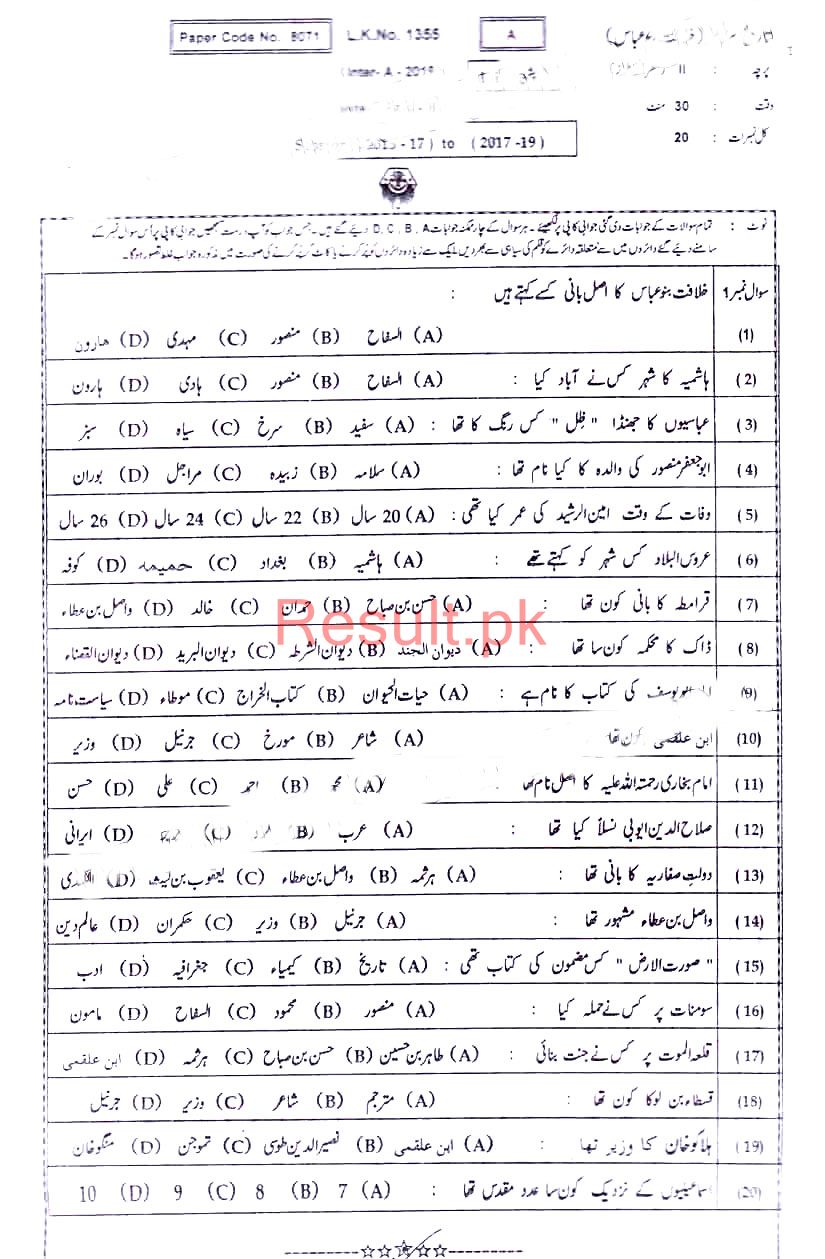 Paper Code No. 8071 L.K.No. 1355 A
(Inter - A - 2019)
وقت : 30 منٹ
کل نمبرات : 20
(2015 - 17) to (2017 -19)
نوٹ : تمام سوالات کے جوابات دی گئی جوابی کاپی پر لکھیئے۔ ہر سوال کے چار ممکنہ جوابات D, C, B, A دیئے گئے ہیں۔ جس جواب کو آپ درست سمجھیں جوابی کاپی پر اُس سوال نمبر کے
سامنے دیئے گئے دائروں میں سے متعلقہ دائرے کو قلم کی سیاہی سے بھر دیں۔ ایک سے زیادہ دائروں کو پُر کرنے یا کاٹ کر پُر کرنے کی صورت میں مذکورہ جواب غلط تصور ہوگا۔
سوال نمبر 1 خلافت بنو عباس کا اصل بانی کسے کہتے ہیں :
(1) (A) السفاح (B) منصور (C) مہدی (D) ھارون
(2) ہاشمیہ کا شہر کس نے آباد کیا : (A) السفاح (B) منصور (C) ہادی (D) ہارون
(3) عباسیوں کا جھنڈا " ظِل " کس رنگ کا تھا : (A) سفید (B) سرخ (C) سیاہ (D) سبز
(4) ابو جعفر منصور کی والدہ کا کیا نام تھا : (A) سلامہ (B) زبیدہ (C) مراجل (D) بوران
(5) وفات کے وقت امین الرشید کی عمر کیا تھی : (A) 20 سال (B) 22 سال (C) 24 سال (D) 26 سال
(6) عروس البلاد کس شہر کو کہتے تھے : (A) ہاشمیہ (B) بغداد (C) حمیمہ (D) کوفہ
(7) قرامطہ کا بانی کون تھا : (A) حسن بن صباح (B) حمدان (C) خالد (D) واصل بن عطاء
(8) ڈاک کا محکمہ کون سا تھا : (A) دیوان الجند (B) دیوان الشرطہ (C) دیوان البرید (D) دیوان القضاء
(9) یوسف کی کتاب کا نام ہے : (A) حیات الحیوان (B) کتاب الخراج (C) موطاء (D) سیاست نامہ
(10) ابن علقمی کون تھا (A) شاعر (B) مورخ (C) جرنیل (D) وزیر
(11) امام بخاری رحمتہ اللہ علیہ کا اصل نام تھا (A) محمد (B) احمد (C) علی (D) حسن
(12) صلاح الدین ایوبی نسلاً کیا تھا : (A) عرب (B) (C) (D) ایرانی
(13) دولتِ صفاریہ کا بانی تھا : (A) ہرثمہ (B) واصل بن عطاء (C) یعقوب بن لیث (D)
(14) واصل بن عطاء مشہور تھا : (A) جرنیل (B) وزیر (C) حکمران (D) عالم دین
(15) " صورت الارض " کس مضمون کی کتاب تھی : (A) تاریخ (B) کیمیاء (C) جغرافیہ (D) ادب
(16) سومنات پر کس نے حملہ کیا : (A) منصور (B) محمود (C) السفاح (D) مامون
(17) قلعہ الموت پر کس نے جنت بنائی : (A) طاہر بن حسین (B) حسن بن صباح (C) ہرثمہ (D) ابن علقمی
(18) قسطاء بن لوکا کون تھا : (A) مترجم (B) شاعر (C) وزیر (D) جرنیل
(19) ہلاکو خان کا وزیر تھا : (A) ابن علقمی (B) نصیر الدین طوسی (C) تموجن (D) منگو خان
(20) اسماعیلیوں کے نزدیک کون سا عدد مقدس تھا : (A) 7 (B) 8 (C) 9 (D) 10
Result.pk